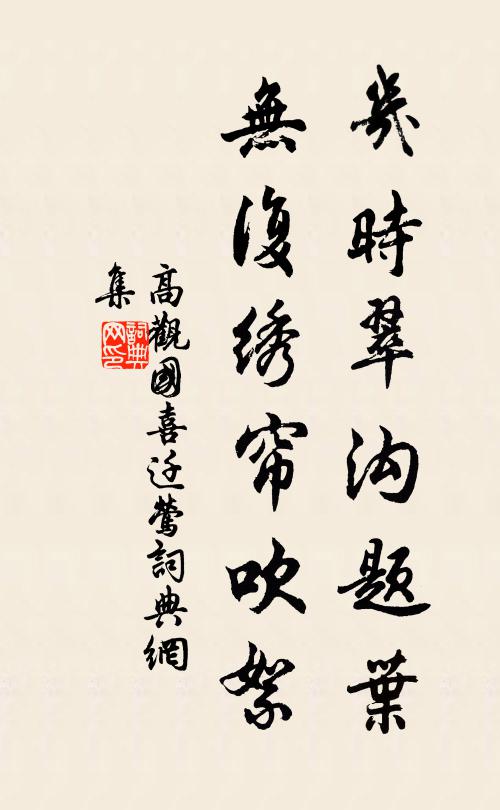 幾時翠沟題葉
無復绣帘吹絮
高觀國喜迁鶯詞典網
集
詞典网印